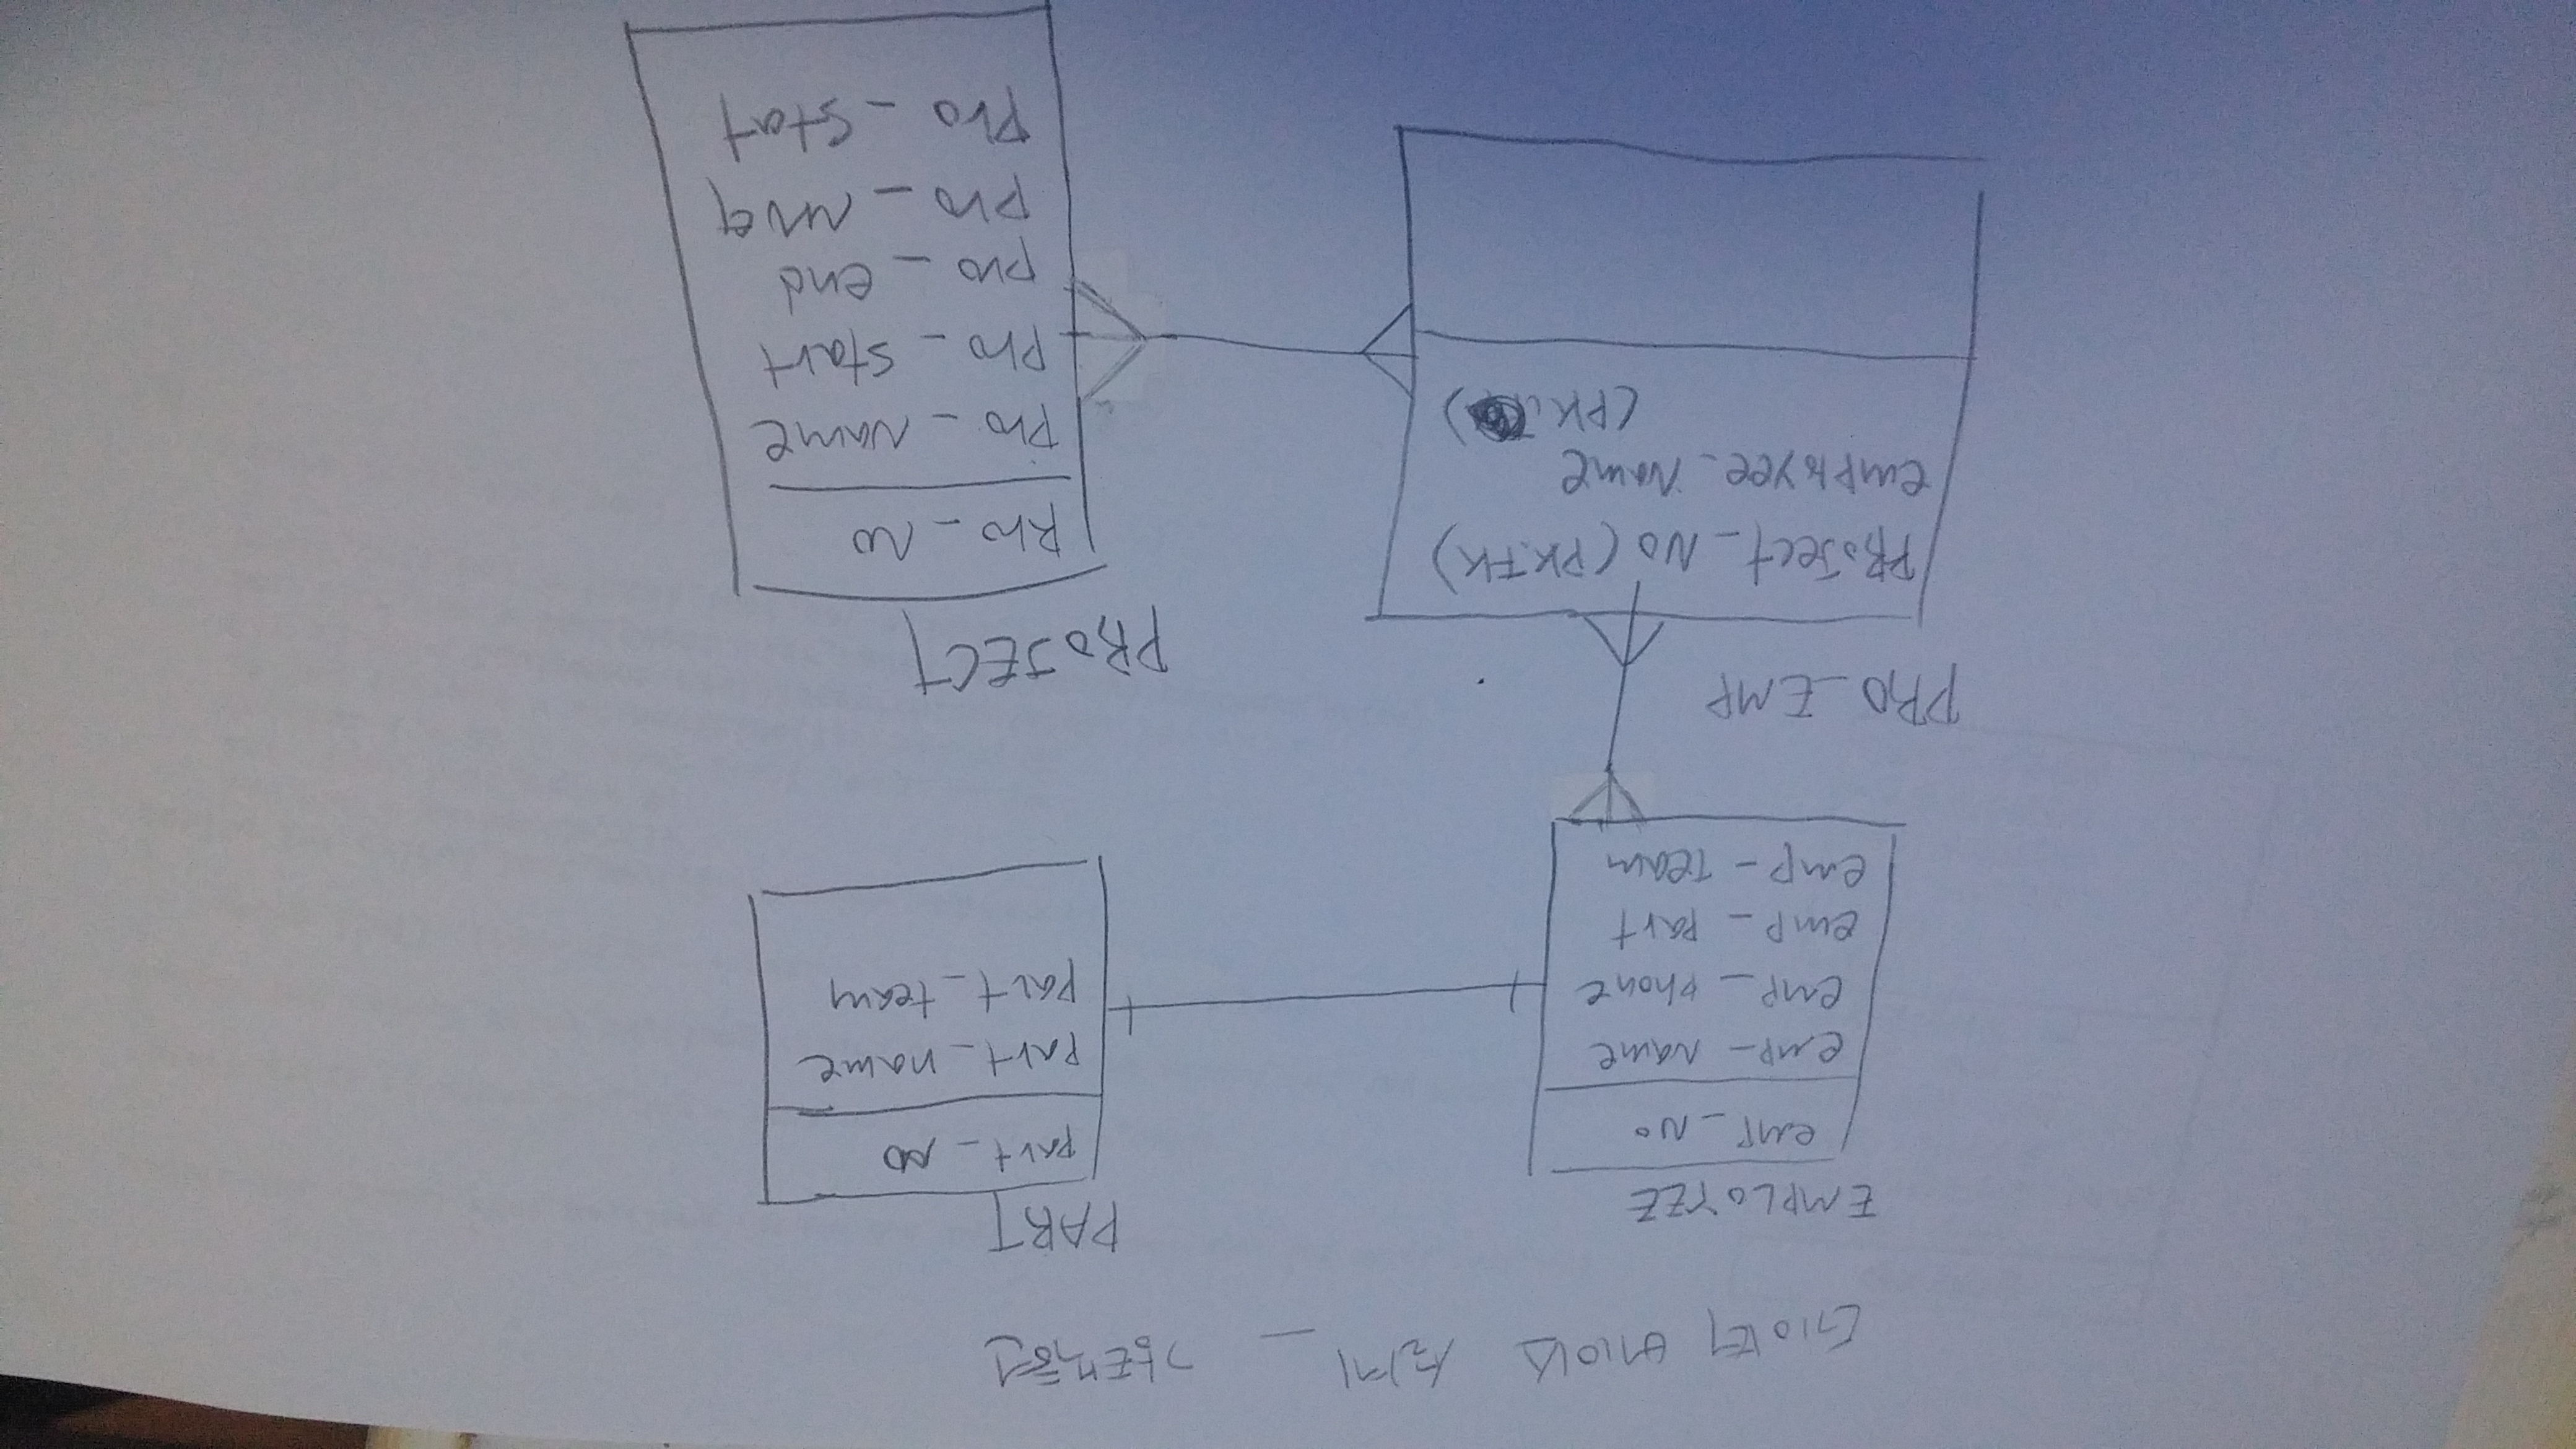 데이터 베이스 설계 _ 강택현
EMPLOYEE
emp_No
emp_Name
emp_phone
emp_part
emp_Team
PART
part_NO
part_name
part_team
PRO_EMP
PRoJect_NO (PK.FK)
employee_Name
(PK.
PROJECT
Pro_NO
Pro_Name
Pro_Start
pro_end
pro_
Pro_Stat